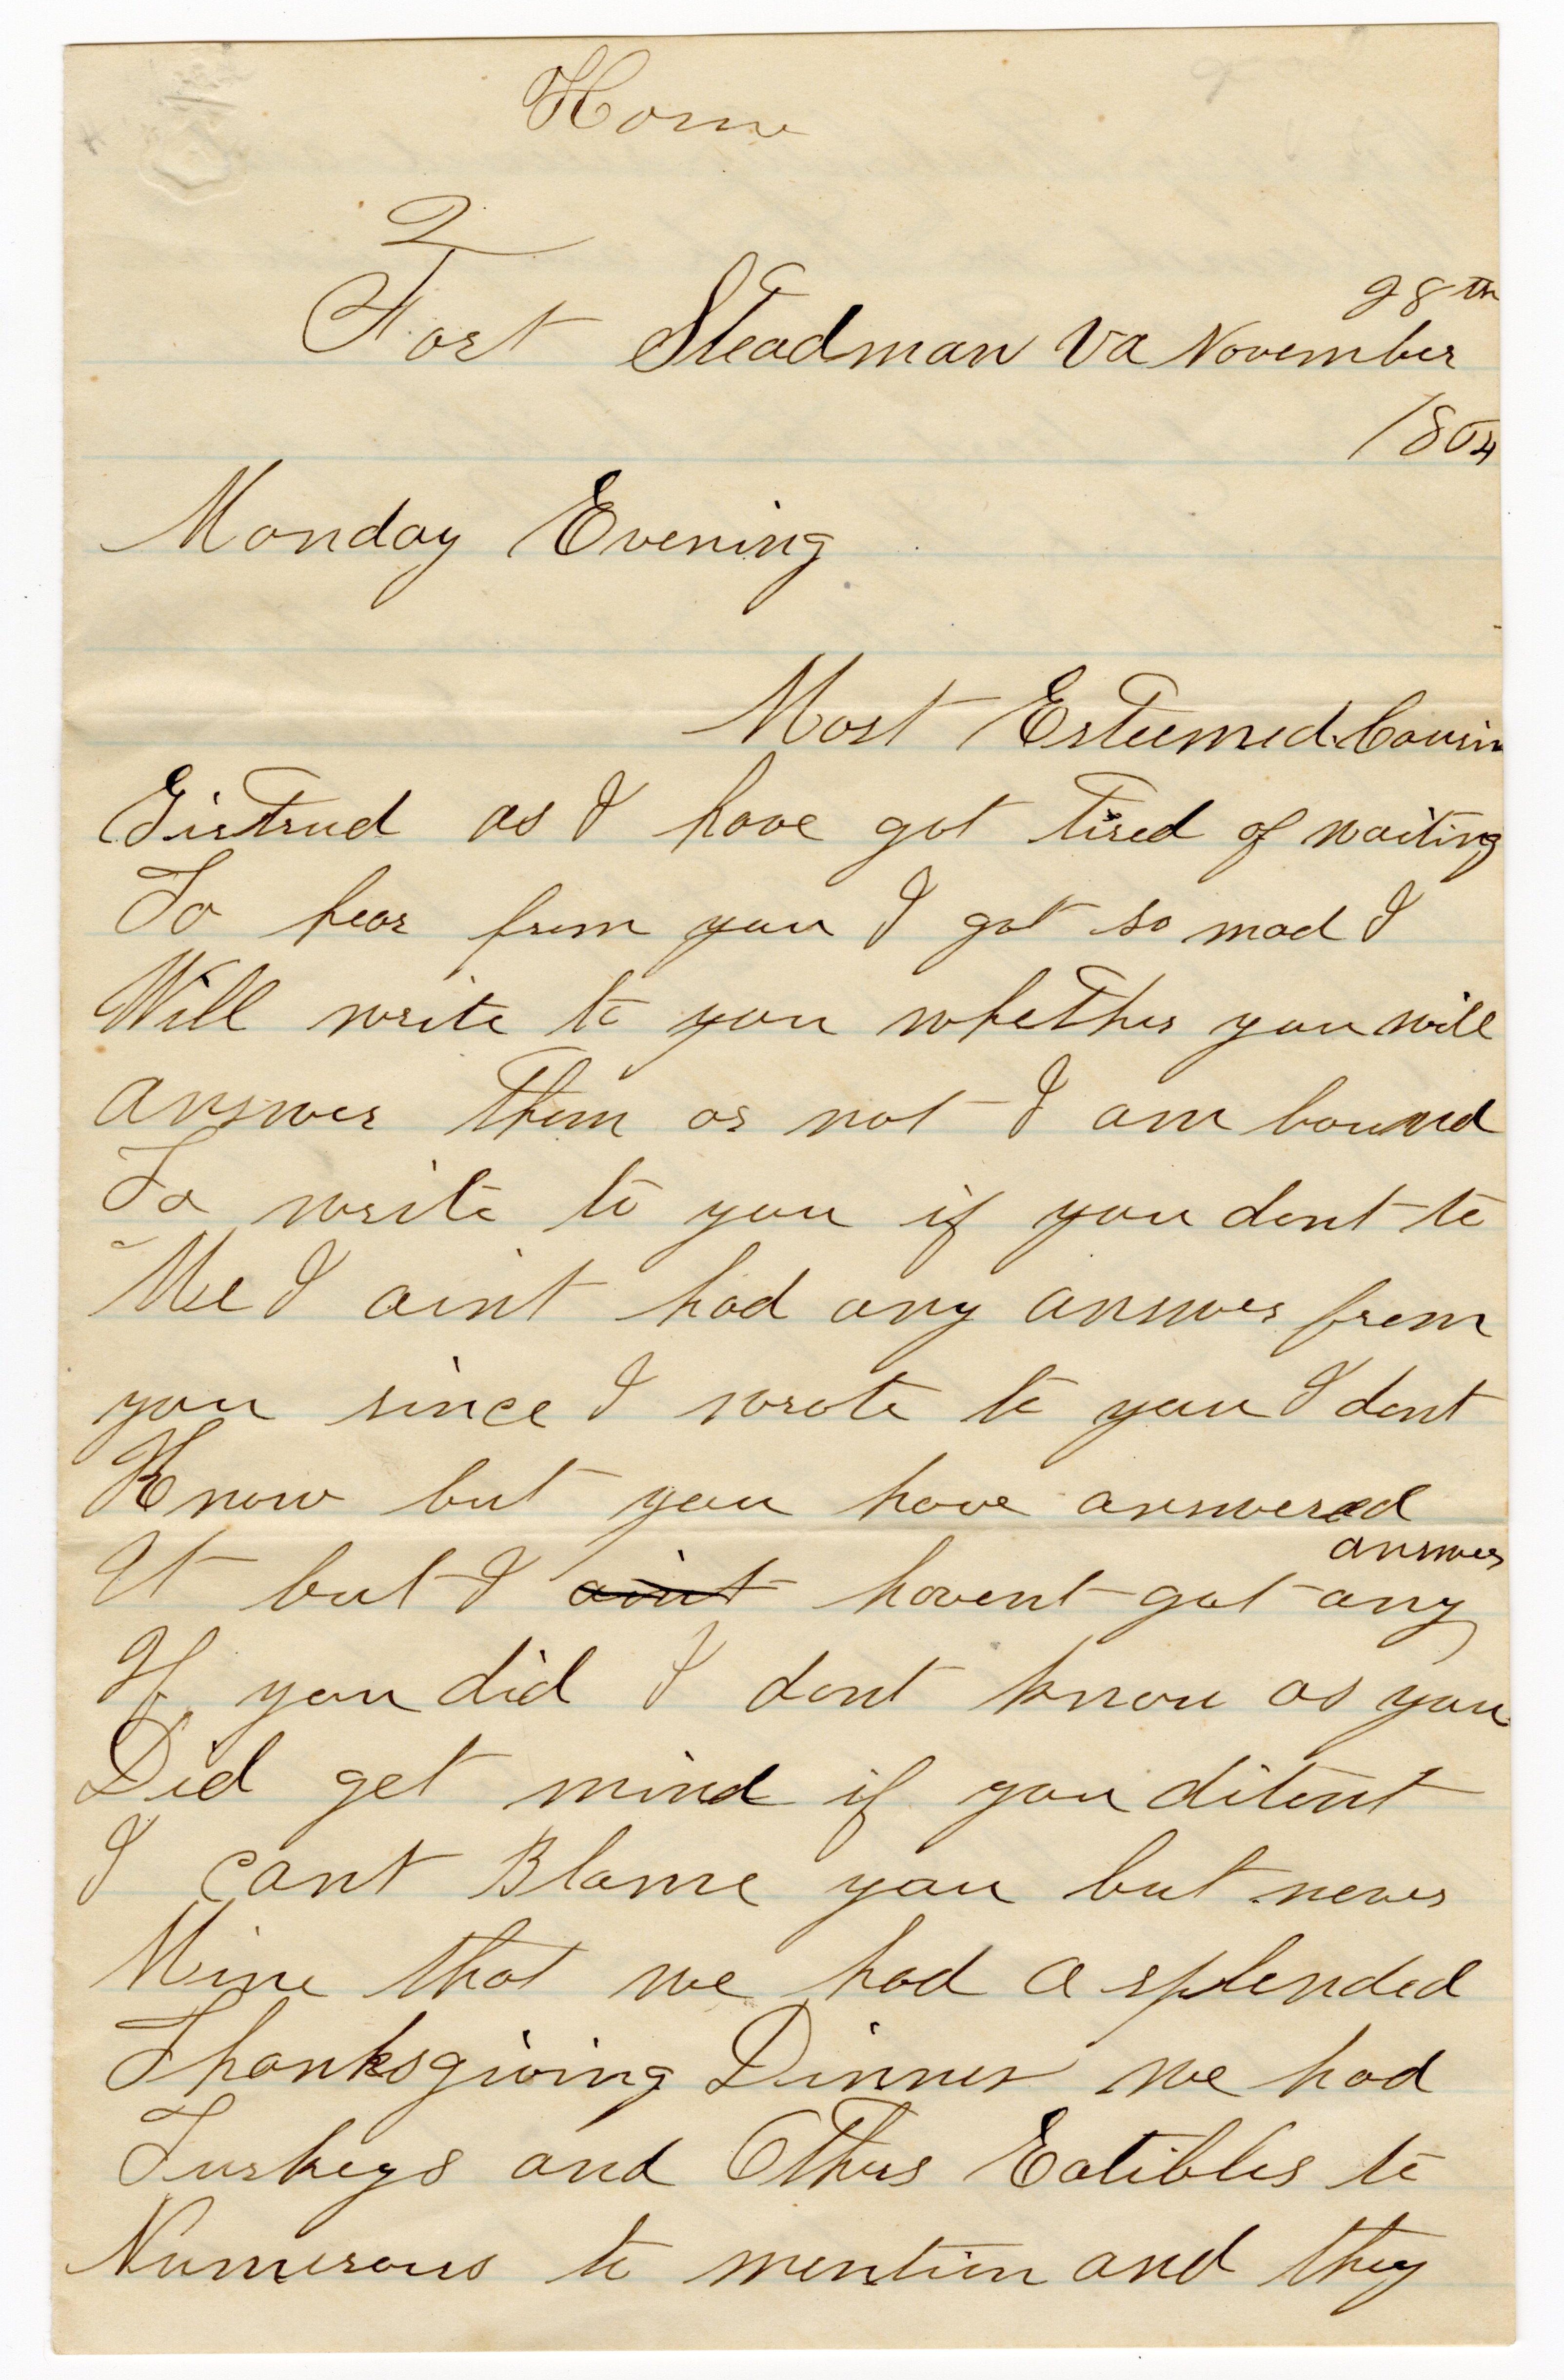 Home
2
Fort Steadman Va November 28th
1864
Monday Evening
Most Esteemed Cousin
Girtrud as I have got tired of waiting
To hear from you I got so mad I
Will write to you whether you will
answer them or not I am bound
To write to you if you dont to
Me I aint had any answer from
you since I wrote to you I dont
Know but you have answered
It but I aint havent got any answer
If you did I dont know as you
Did get mind if you ditent
I cant Blame you but never
Mine that we had a splended
Thanksgiving Dinner we had
Turkeys and Others Eatibles to
Numerous to mention and they